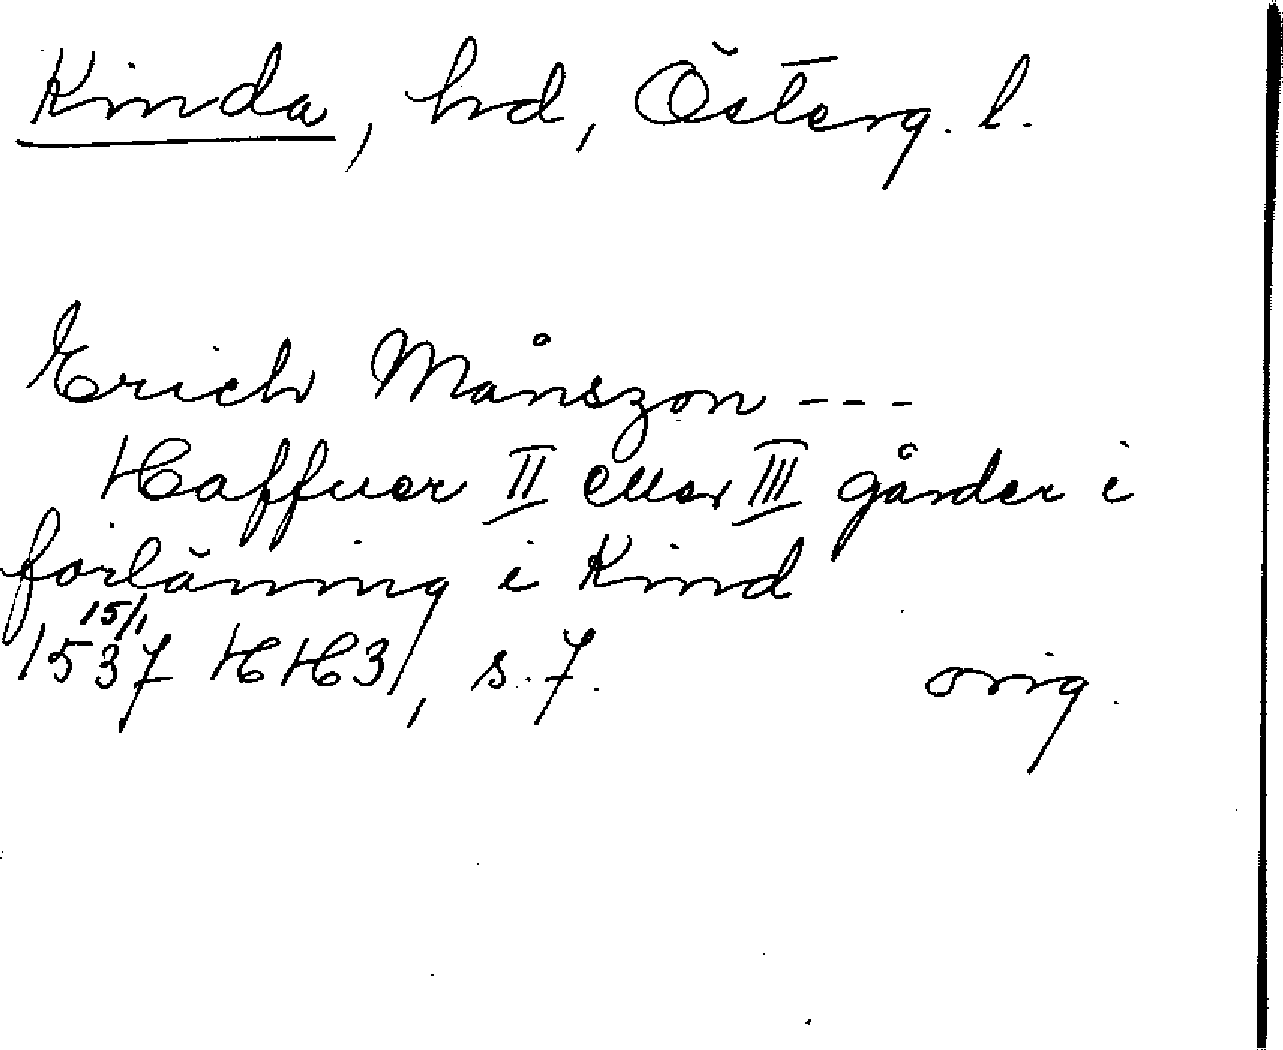 Kinda, hd, Österg. l.
Erich Månszon ---
Haffuer II eller III gårder i
förläning i Kind
15/1
1537 HH3, s. 7. orig.